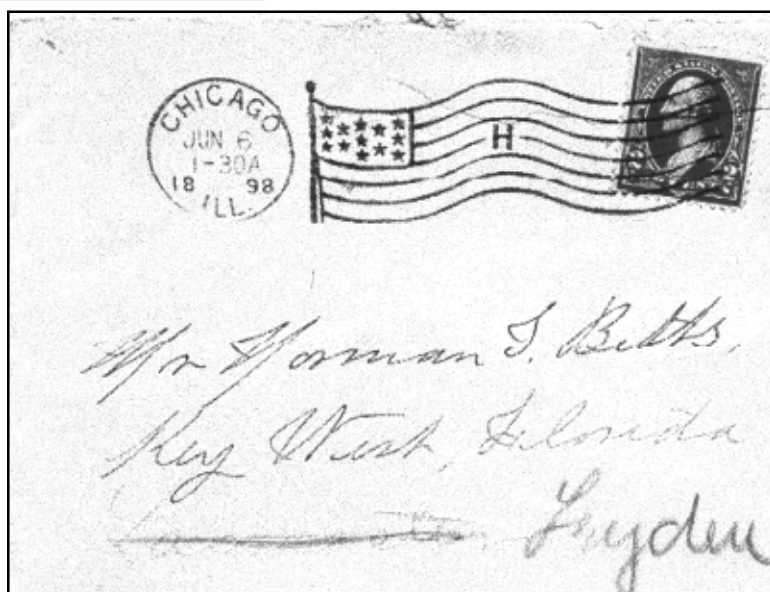 CHICAGO
JUN 6
1-30A
18 98
ILL.
H
Mr Norman T. Betts,
Key West, Florida